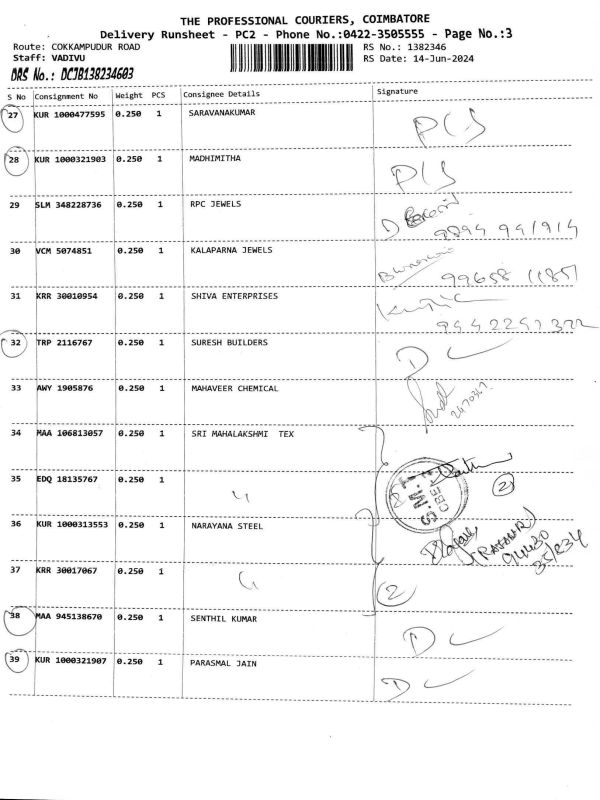 THE PROFESSIONAL COURIERS, COIMBATORE
Delivery Runsheet - PC2 - Phone No.:0422-3505555 - Page No.:3
Route: COKKAMPUDUR ROAD RS No.: 1382346
Staff: VADIVU RS Date: 14-Jun-2024
DRS No.: DCJB138234603
S No Consignment No Weight PCS Consignee Details Signature
27 KUR 1000477595 0.250 1 SARAVANAKUMAR
28 KUR 1000321903 0.250 1 MADHIMITHA
29 SLM 348228736 0.250 1 RPC JEWELS
9894 941914
30 VCM 5074851 0.250 1 KALAPARNA JEWELS
99658 11851
31 KRR 30010954 0.250 1 SHIVA ENTERPRISES
32 TRP 2116767 0.250 1 SURESH BUILDERS D
33 AWY 1905876 0.250 1 MAHAVEER CHEMICAL
34 MAA 106813057 0.250 1 SRI MAHALAKSHMI TEX
35 EDQ 18135767 0.250 1 2
36 KUR 1000313553 0.250 1 NARAYANA STEEL
94430
35/234
37 KRR 30017067 0.250 1 2
38 MAA 945138670 0.250 1 SENTHIL KUMAR D
39 KUR 1000321907 0.250 1 PARASMAL JAIN D